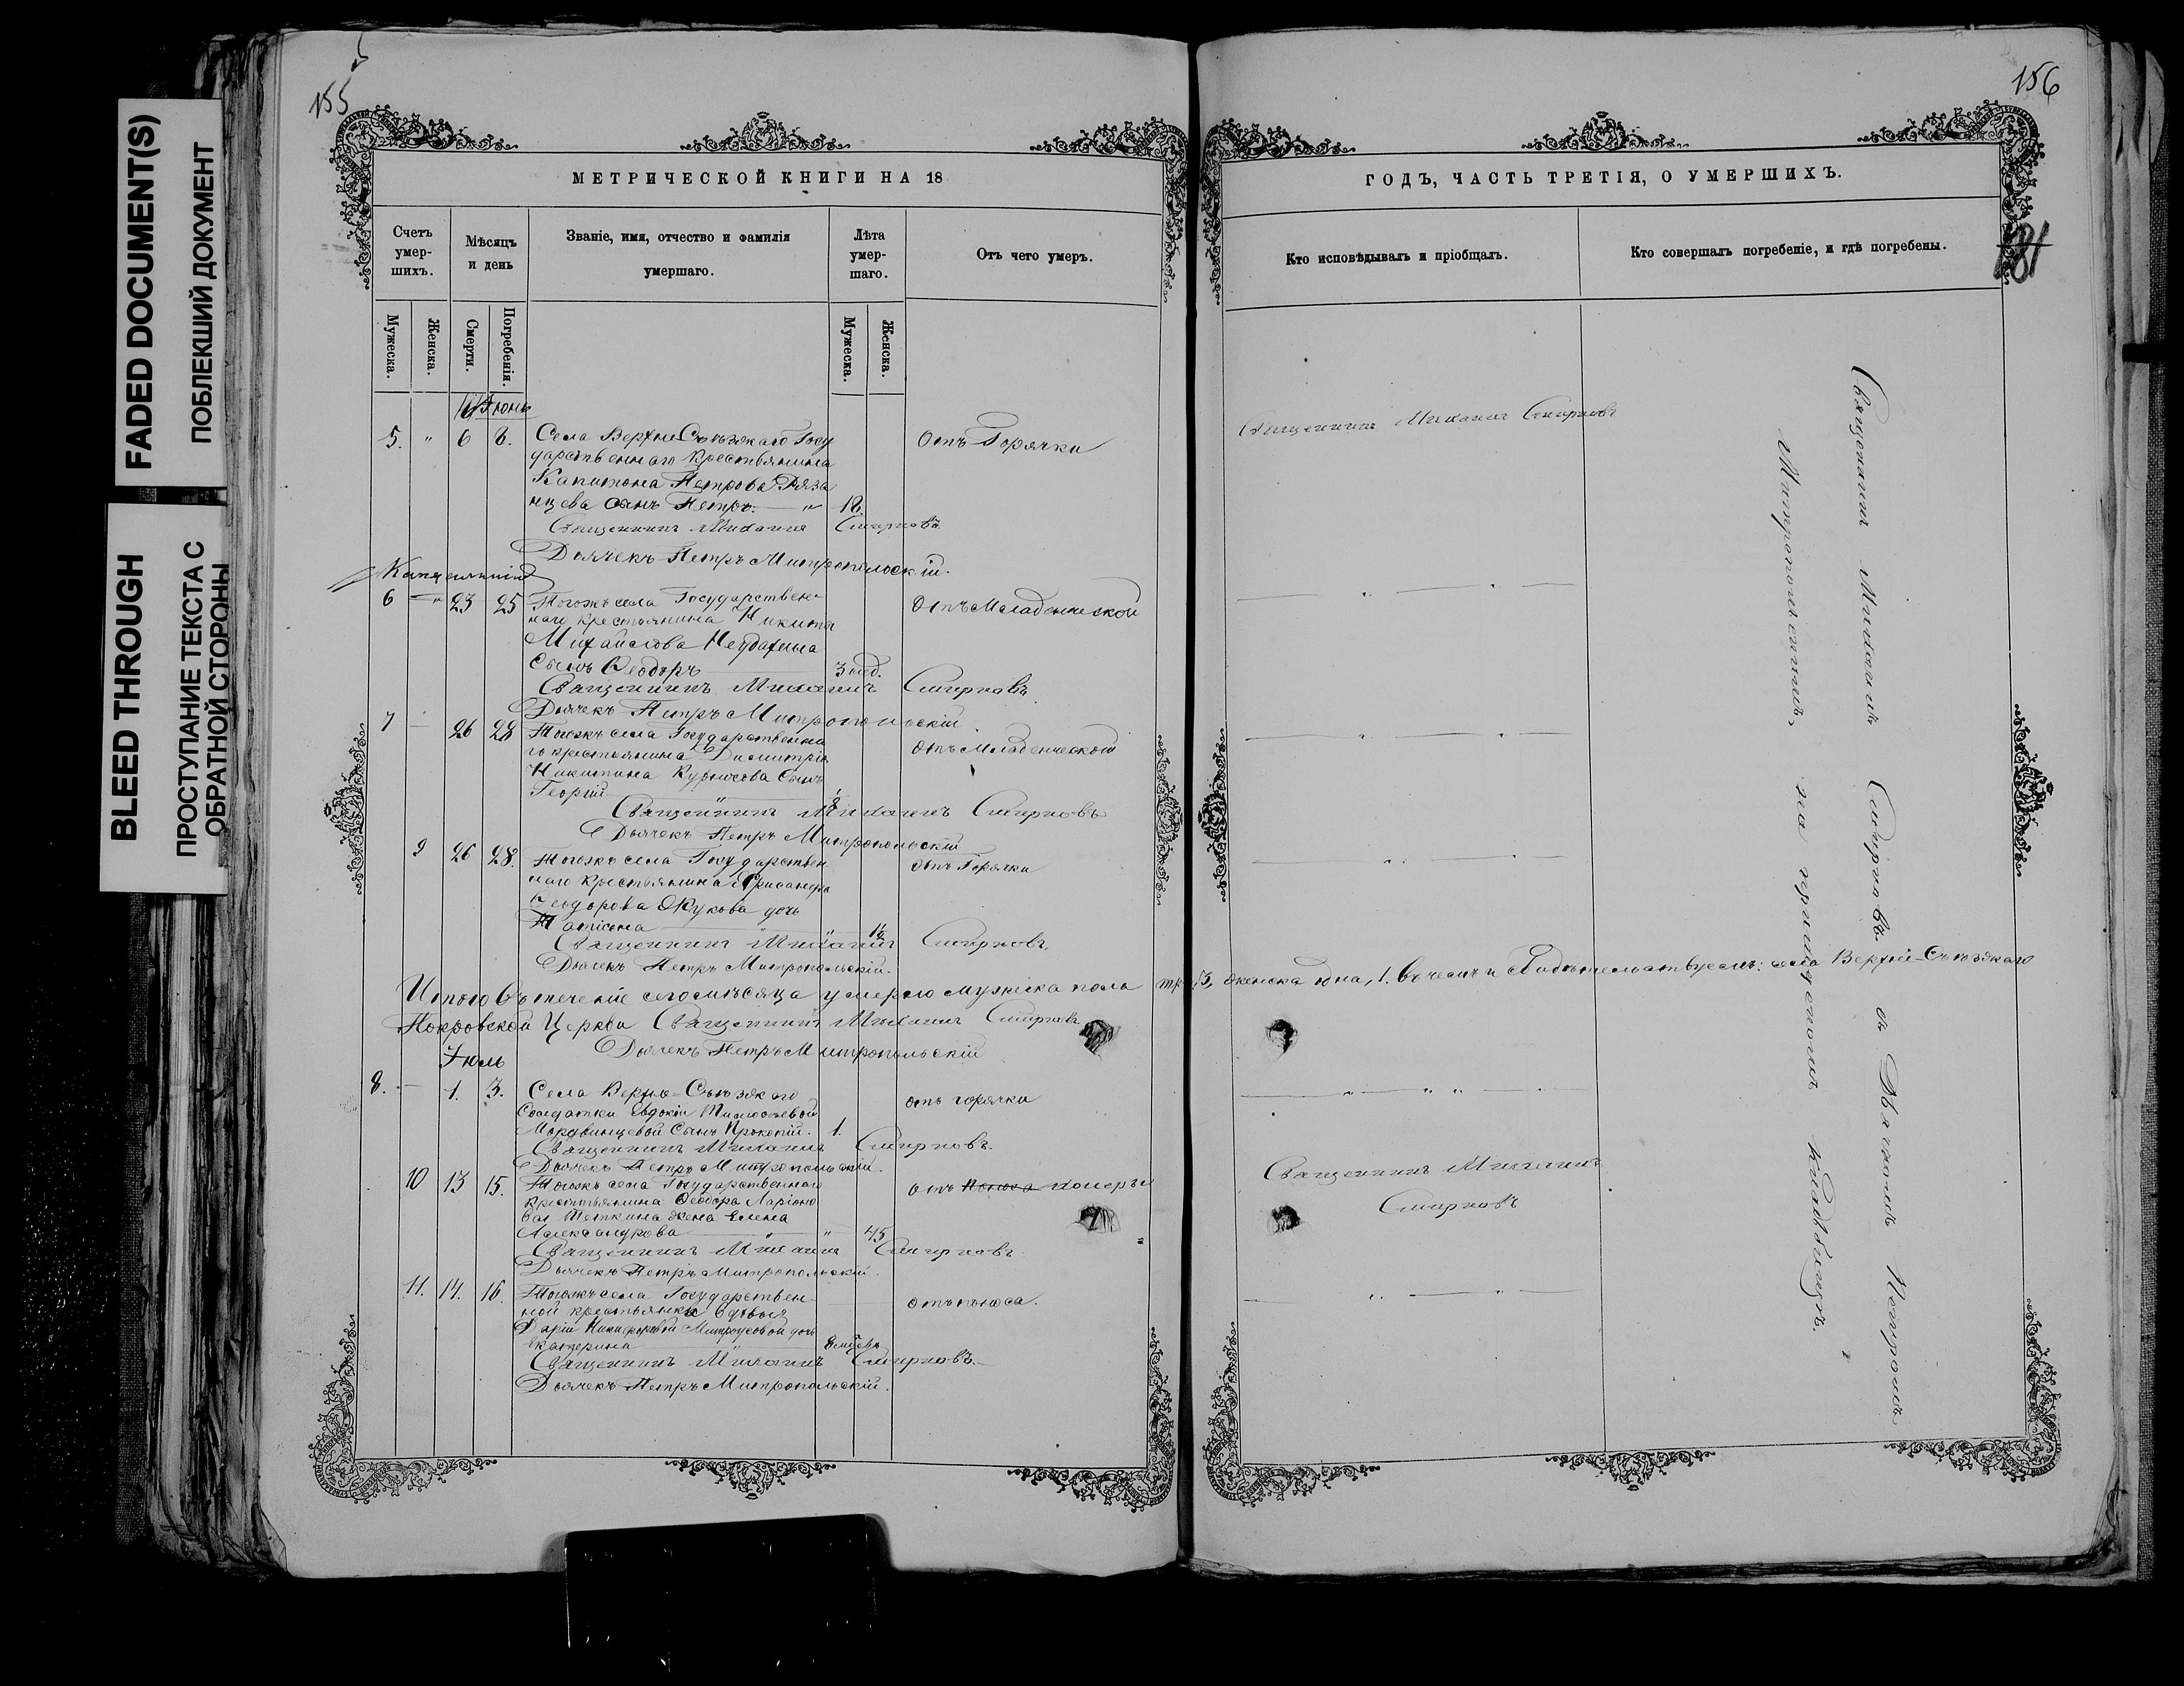 FADED DOCUMENT(S)
ПОБЛЕКШИЙ ДОКУМЕНТ
BLEED THROUGH
ПРОСТУПАНИЕ ТЕКСТА С
ОБРАТНОЙ СТОРОНЫ
155
МЕТРИЧЕСКОЙ КНИГИ НА 18
Счетъ умер-шихъ.
Мѣсяцъ и день
Званіе, имя, отчество и фамилія умершаго.
Лѣта умер-шаго.
Отъ чего умеръ.
Мужеска.
Женска.
Смерти.
Погребенія.
Мужеска.
Женска.
Іюнь
5. " 6 8. Села Верхне Съѣзжаго Госу Отъ Горячки
дарственнаго Крестьянина
Капитона Петрова Ряза
нцева сынъ Петръ. — " 18
Священникъ Михаилъ Смирновъ
Дьячекъ Петръ Митропольскій.
6 — " 23 25 Тогожъ села Государствен- Отъ Младенческой
наго крестьянина Никиты
Михайлова Неудахина
Сынъ Ѳеодоръ 3 нед.
Священникъ Михаилъ Смирновъ
Дьячекъ Петръ Митропольскій
7 — 26 28 Тогожъ села Государственна
го крестьянина Димитрія Отъ Младенческой
Никитина Курносова Сынъ
Георгій
Священникъ Михаилъ Смирновъ
Дьячекъ Петръ Митропольскій
9 26 28. Тогожъ села Государствен Отъ Горячки
наго крестьянина
Ѳеодорова Жукова дочь
Татіана
Священникъ Михаилъ Смирновъ,
Дьячекъ Петръ Митропольскій.
Итого въ теченіе сего мѣсяца умерло мужеска пола три 3, женска одна, 1. Въ чемъ и Свидѣтельствуемъ: села Верхне-Съѣзжаго
Покровской Церкви Священникъ Михаилъ Смирновъ
Дьячекъ Петръ Митропольскій
Іюль
8. — 1. 3. Села Верхне-Съѣзжаго отъ горячки
Солдатки Евдокіи Тимоѳеевой
Мордвинцевой Сынъ Прокопій. 1.
Священникъ Михаилъ Смирновъ.
Дьячекъ Петръ Митропольскій.
10 13 15. Тогожъ села Государственнаго отъ поноса холеры
Крестьянина Ѳеодора Ларіоно
ва Теткина жена Елена
Александрова " " 45
Священникъ Михаилъ Смирновъ
Дьячекъ Петръ Митропольскій.
11. 14. 16. Тогожъ села Государствен отъ поноса.
ной крестьянки вдовы
Даріи Никифоровой Митрусовой дочь
Екатерина
Священникъ Михаилъ Смирновъ.
Дьячекъ Петръ Митропольскій.
156
ГОДЪ, ЧАСТЬ ТРЕТІЯ, О УМЕРШИХЪ.
181
Кто исповѣдывалъ и пріобщалъ.
Кто совершалъ погребеніе, и гдѣ погребены.
Священникъ Михаилъ Смирновъ
Священникъ Михаилъ
Смирновъ
Священникъ Михаилъ Смирновъ съ Дьячкомъ Петромъ
Митропольскимъ, на приходскомъ кладбищѣ.